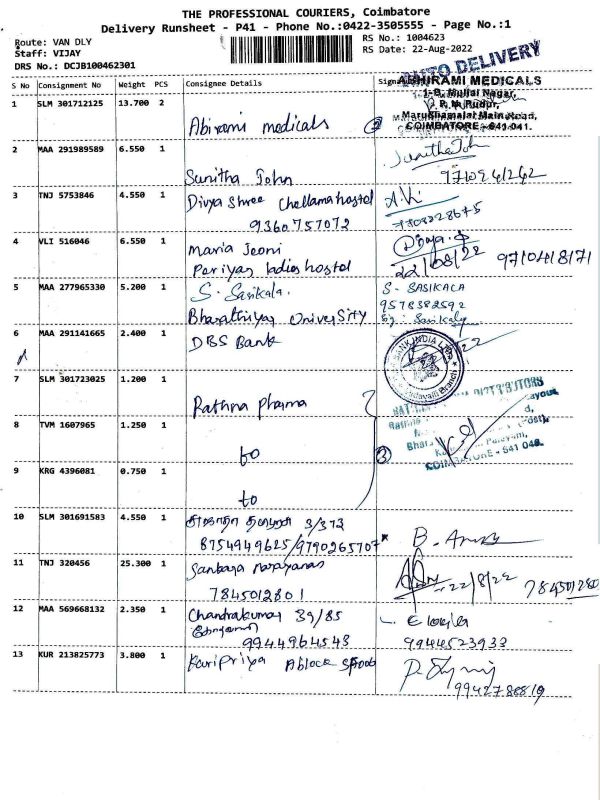 THE PROFESSIONAL COURIERS, Coimbatore
Delivery Runsheet - P41 - Phone No.:0422-3505555 - Page No.:1
Route: VAN DLY
RS No.: 1004623
Staff: VIJAY
RS Date: 22-Aug-2022
DRS No.: DCJB100462301
AUTO DELIVERY
S No Consignment No Weight PCS Consignee Details
ABHIRAMI MEDICALS
1 SLM 301712125 13.700 2 Abirami medicals
1-B, Mullai Nagar,
P. N. Pudur,
Marudhamalai Main Road,
COIMBATORE - 641 041.
2 MAA 291989589 6.550 1 Sunitha John
Sunitha John
3 TNJ 5753846 4.550 1 Divya Shree Chellama hostel
9360757072
4 VLI 516046 6.550 1 Maria Jeoni
Periyar ladies hostel
22/08/22 9710418171
5 MAA 277965330 5.200 1 S. Sasikala.
Bharathiyar University
S. SASIKALA
9578382592
6 MAA 291141665 2.400 1 DBS Bank
7 SLM 301723025 1.200 1 Rathna pharma
8 TVM 1607965 1.250 1 to
COIMBATORE - 641 046.
9 KRG 4396081 0.750 1 to
10 SLM 301691583 4.550 1 3/373
8754949625/9790265707
11 TNJ 320456 25.300 1 Sankara narayanan
7845012801
22/8/22
12 MAA 569668132 2.350 1 Chandrakumar 39/85
9944964543
9944523933
13 KUR 213825773 3.800 1 Karipriya A block